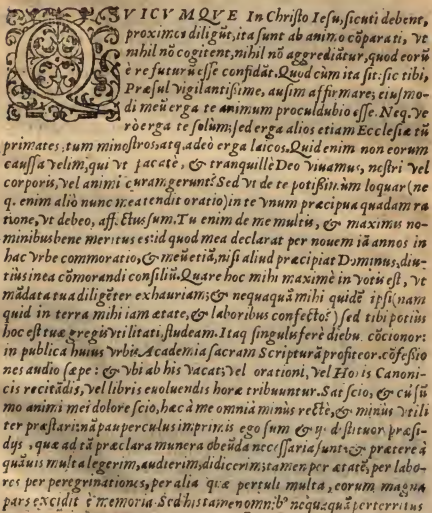 QVICVMQVE In Christo Iesu, sicuti debent,
proximos diligũt, ita sunt ab animo cõparati, vt
nihil nõ cogitent, nihil nõ aggrediãtur, quod eorũ
è re futurũ esse confidãt. Quod cùm ita sit: sic tibi,
Præsul vigilantißime, ausim affirmare; eiusmo-
di meũ erga te animum proculdubio esse. Neq. ve
rò erga te solùm; sed erga alios etiam Ecclesiæ tũ
primates; tum minostros; atq; adeò erga laicos. Quid enim non eorum
caussa velim, qui vt pacatè, & tranquillè Deo viuamus, nestri vel
corporis, vel animi curam gerunt? Sed vt de te potißimùm loquar (ne
q. enim aliò nunc mea tendit oratio) in te vnum præcipua quadam ra
tione, vt debeo, affectus sum. Tu enim de me multis, & maximis no-
minibus bene meritus es: id quod mea declarat per nouem iã annos in
hac vrbe commoratio, & meũ etiã, nisi aliud præcipiat Dominus, diu-
tius in ea cõmorandi consiliũ. Quare hoc mihi maximè in votis est, vt
mãdata tua diligẽter exhauriam; & nequaquã mihi quidẽ ipsi (nam
quid in terra mihi iam ætate, & laboribus confecto?) sed tibi potiùs
hoc est tuæ gregis vtilitati, studeam. Itaq singulis ferè diebu. cõcionor:
in publica huius vrbis Academia sacram Scripturã profiteor. cõfeßio
nes audio sæpe: & vbi ab his vacat; vel orationi, vel Horis Canoni-
cis recitãdis, vel libris euoluendis horæ tribuuntur. Sat scio, & cũ sũ
mo animi mei dolore scio, hæc à me omnia minùs rectè, & minùs vtili
ter præstari: nã pauperculus inprimis ego sum & ijs destitutor præsi-
dijs, quæ ad tã præclara munera obeũda necessaria sunt: & præterea
quãuis multa legerim, audierim, didicerim; tamen per ætatẽ, per labo-
res per peregrinationes, per alia quæ pertuli multa, eorum magna
pars excidit è memoria. Sed his tamen omnib' nequaquã perterritus